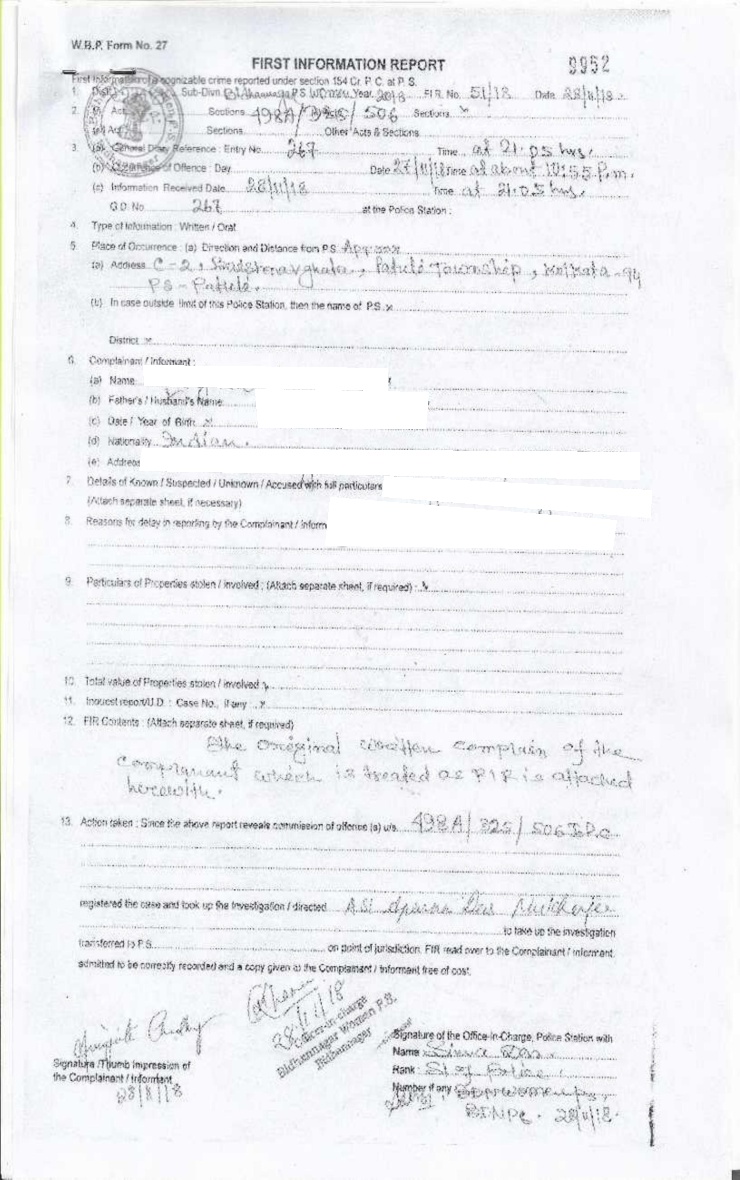 W.B.P. Form No. 27
FIRST INFORMATION REPORT
9952
First Information of a cognizable crime reported under section 154 Cr. P. C. at P. S.
1. Sub-Divn. Bidhannagar PS Women Year 2018 F.I.R. No. 51/18 Date 28/11/18.
2. Act Sections 498A/325/506 Sections x
Act Sections Other Acts & Sections
3. (a) General Diary Reference : Entry No. 267 Time at 21.05 hrs.
(b) Occurrence of Offence : Day Date 27/11/18 Time at about 10:55 P.m.
(c) Information Received Date 28/11/18 Time at 21.05 hrs.
G.D. No. 267 at the Police Station :
4. Type of Information : Written / Oral
5. Place of Occurrence : (a) Direction and Distance from P.S. Approx
(a) Address C-2, Patuli Township, Kolkata-94
PS - Patuli.
(b) In case outside limit of this Police Station, then the name of P.S. x
District x
6. Complainant / Informant :
(a) Name
(b) Father's / Husband's Name
(c) Date / Year of Birth x
(d) Nationality Indian.
(e) Address
7. Details of Known / Suspected / Unknown / Accused with full particulars
(Attach separate sheet, if necessary)
8. Reasons for delay in reporting by the Complainant / Inform
9. Particulars of Properties stolen / involved : (Attach separate sheet, if required) : x
10. Total value of Properties stolen / involved x
11. Inquest report/U.D. : Case No., if any x
12. FIR Contents : (Attach separate sheet, if required)
The original written complain of the
complainant which is treated as FIR is attached
herewith.
13. Action taken : Since the above report reveals commission of offence (s) u/s. 498A/325/506 I.P.C.
registered the case and took up the investigation / directed ASI
to take up the investigation
transferred to P.S. on point of jurisdiction. FIR read over to the Complainant / Informant,
admitted to be correctly recorded and a copy given to the Complainant / Informant free of cost.
28/11/18
Officer-in-charge
Bidhannagar Women P.S.
Bidhannagar
Signature / Thumb Impression of
the Complainant / Informant
28/11/18
Signature of the Office-in-Charge, Police Station with
Name Das.
Rank : SI of Police.
Number if any BDN Women ps,
28/11/18.